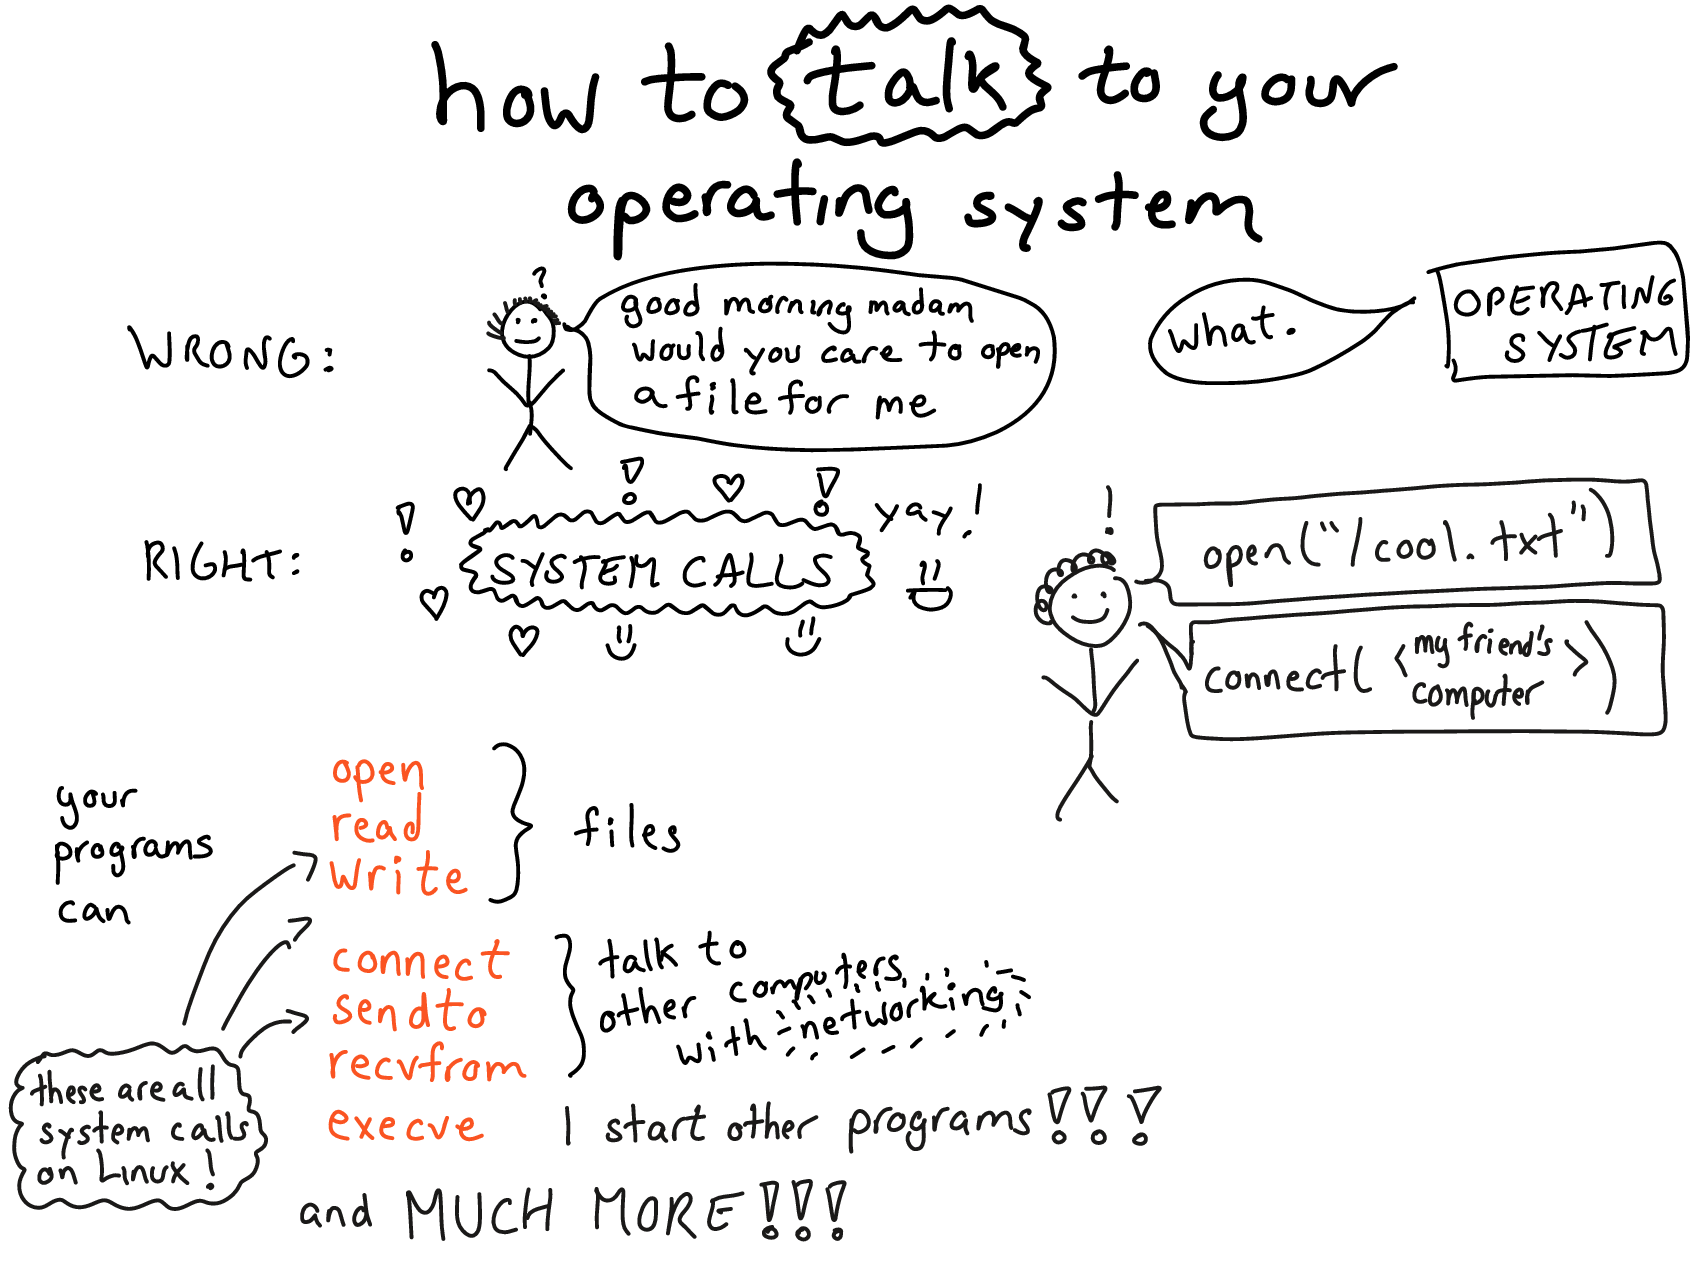 how to talk to your
operating system
WRONG:
?
good morning madam
would you care to open
a file for me
what.
OPERATING
SYSTEM
RIGHT:
SYSTEM CALLS
yay!
!
open("/cool.txt")
connect( <my friend's
computer> )
your
programs
can
open
read
write
files
connect
sendto
recvfrom
talk to
other computers
with networking
execve
start other programs!!!
these are all
system calls
on Linux!
and MUCH MORE!!!